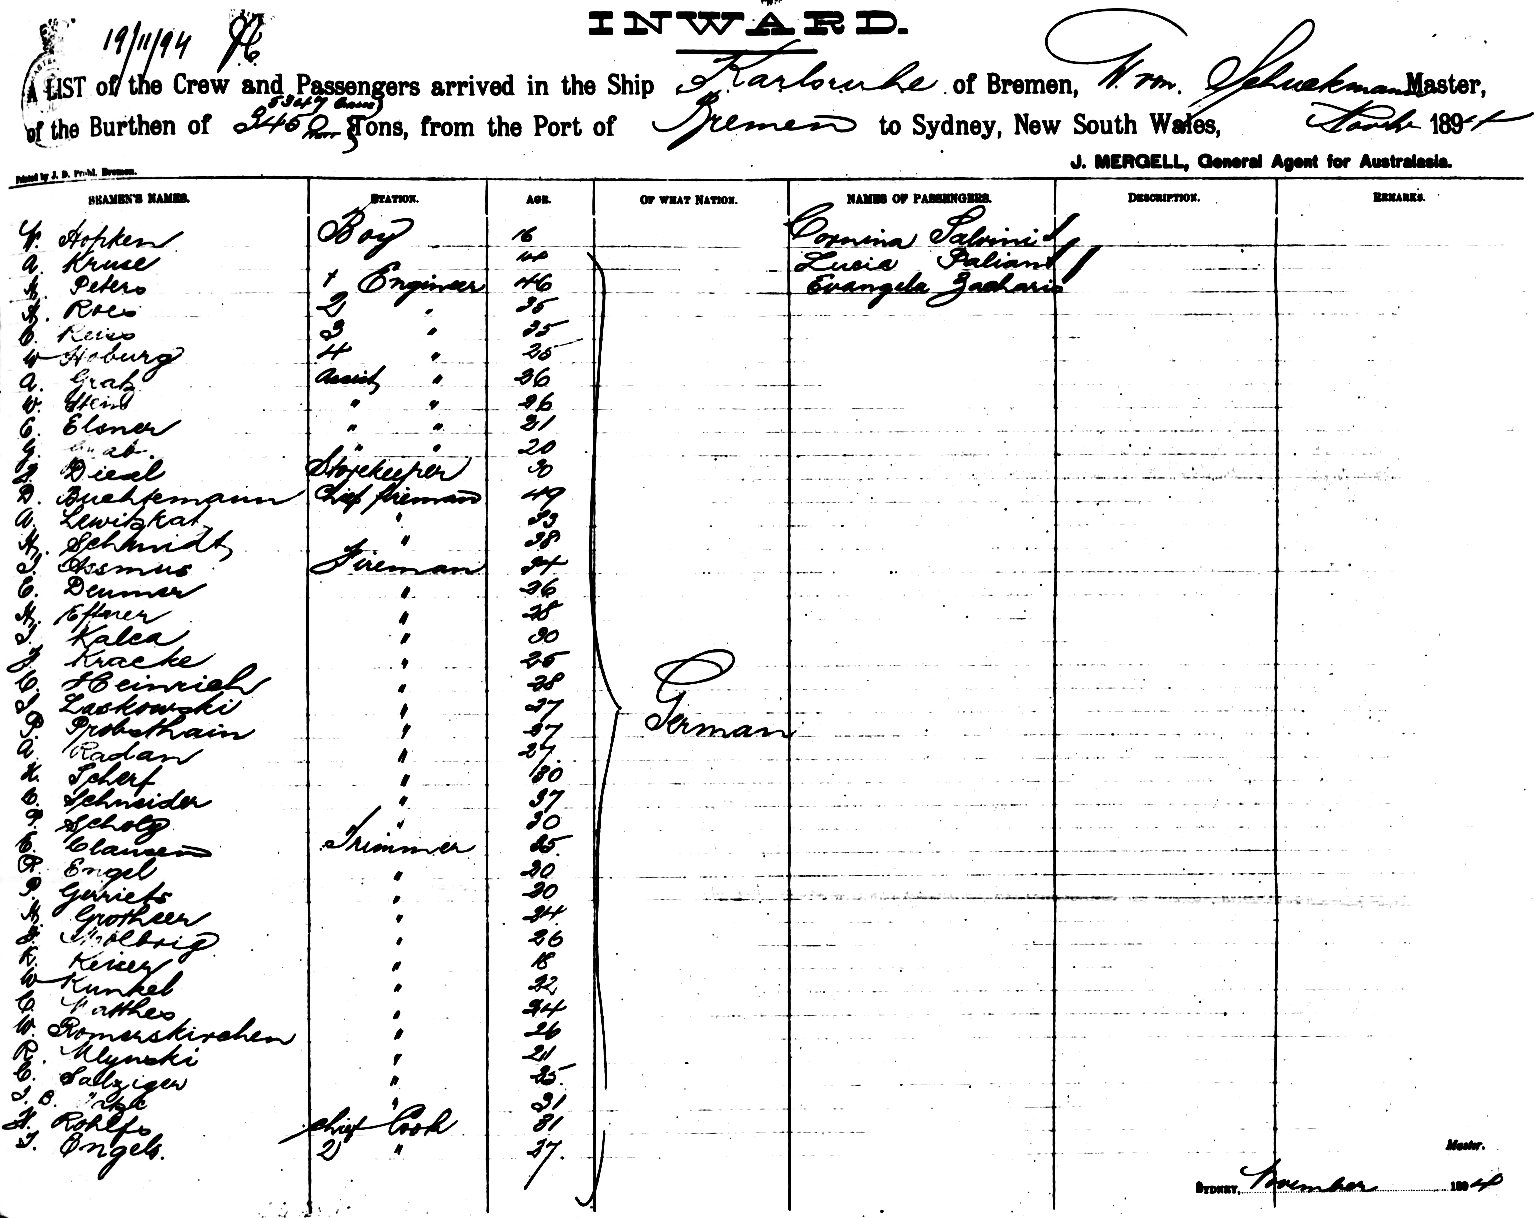 INWARD.
19/11/94
A LIST of the Crew and Passengers arrived in the Ship Karlsruhe of Bremen, W. von. Schuckmann Master,
5347
of the Burthen of 3450 Tons, from the Port of Bremen to Sydney, New South Wales, 1894
J. MERGELL, General Agent for Australasia.
Printed by J. D. Bremen.
SEAMEN'S NAMES. STATION. AGE. OF WHAT NATION. NAMES OF PASSENGERS. DESCRIPTION. REMARKS.
W. Hopken Boy 16 Cornina Salvini
A. Kruse " Lucia
Peters 1 Engineer 46 Evangela Zacharis
2 " 35
C. Reiss 3 " 35
W Hoburg 4 " 25
A. Assist " 26
W. " " 26
C. Elsner " " 31
" " 20
Diesel Storekeeper 30
D. Buchtemann Chief fireman 49
A. Lewiskat " 33
Schmidt " 38
Assmus Fireman 34
C. Deumer " 26
" 28
Kalca " 30
Kracke " 25
C. Heinrich " 28
Laskowski " 27
P. Probsthain " 37
A. Radan " 27
Scherf " 30
C. Schneider " 37
P. Scholz " 30
C. Clausen Trimmer 25
R. Engel " 20
P. Gerriets " 20
Grotheer " 24
" 26
" 18
W Kunkel " 22
C. Matthes " 24
W. Romerskirchen " 26
R. Mlynski " 21
C. Salziger " 25
" 31
H. Rohlfs chief Cook 31
Engels. 2 " 27.
German
Master.
SYDNEY, November 1894